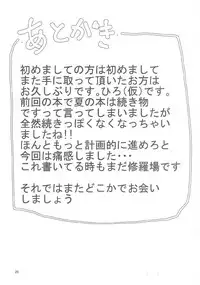 あとがき
初めましての方は初めまして
また手に取って頂いたお方は
お久しぶりです。ひろ(仮)です。
前回の本で夏の本は続き物
ですって言ってしまいましたが
全然続きっぽくなくなっちゃい
ましたね!!
ほんともっと計画的に進めろと
今回は痛感しました・・・
これ書いてる時もまだ修羅場です
それではまたどこかでお会い
しましょう